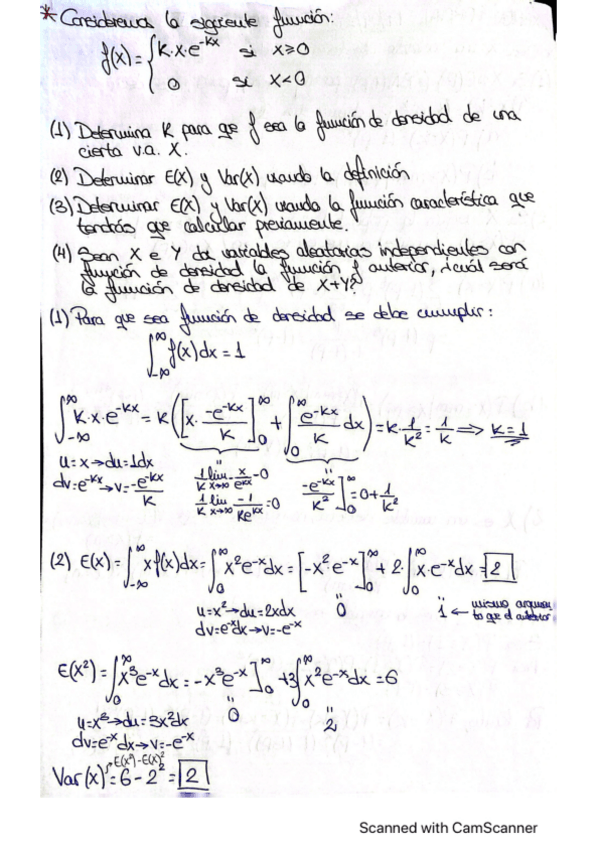 * Consideremos la siguiente función:
f(x) = { k·x·e^-kx si x≥0
0 si x<0
(1) Determina k para que f sea la función de densidad de una
cierta v.a. X.
(2) Determinar E(X) y Var(X) usando la definición
(3) Determinar E(X) y Var(X) usando la función característica que
tendrás que calcular previamente.
(4) Sean X e Y dos variables aleatorias independientes con
función de densidad la función f anterior, ¿cuál será
la función de densidad de X+Y?
(1) Para que sea función de densidad se debe cumplir:
∫_-∞^∞ f(x)dx = 1
∫_-∞^∞ k·x·e^-kx = k([x· -e^-kx/k]_0^∞ + ∫_0^∞ e^-kx/k dx) = k·1/k² = 1/k ⟹ k=1
u=x→du=1dx
dv=e^-kx→v=-e^-kx/k
1/k lim x→∞ -x/e^kx -0
1/k lim x→∞ -1/ke^kx =0
-e^-kx/k²]_0^∞ =0+1/k²
(2) E(X)=∫_-∞^∞ xf(x)dx=∫_0^∞ x²e^-x dx=[-x²e^-x]_0^∞ +2·∫_0^∞ x·e^-x dx=2
u=x²→du=2xdx
dv=e^-x dx→v=-e^-x
0
1 ← mismo argumen
to que el anterior
E(X²)=∫_0^∞ x³e^-x dx=-x³e^-x]_0^∞ +3∫_0^∞ x²e^-x dx=6
u=x³→du=3x²dx
dv=e^-x dx→v=-e^-x
0
2
E(X²)-E(X)²
Var(X)=6-2²=2
Scanned with CamScanner